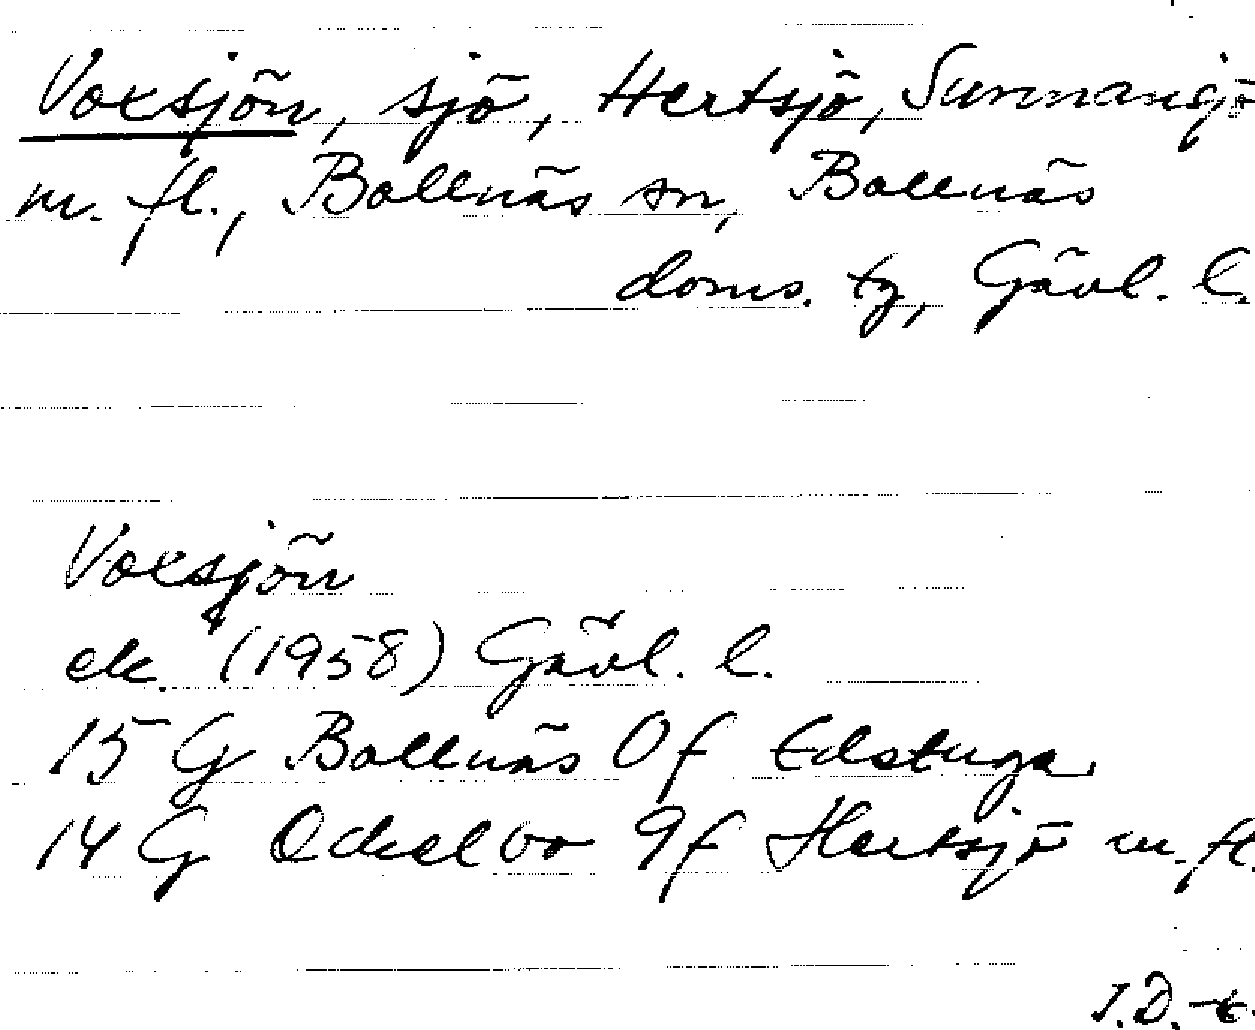 Voxsjön, sjö, Hertsjö, Sunnansjö
m. fl., Bollnäs sn, Bollnäs
doms. tg, Gävl. l.
Voxsjön
ek. (1958) Gävl. l.
15 G Bollnäs 0 f Edstuga
14 G Ockelbo 9 f Hertsjö m. fl.
I.D.